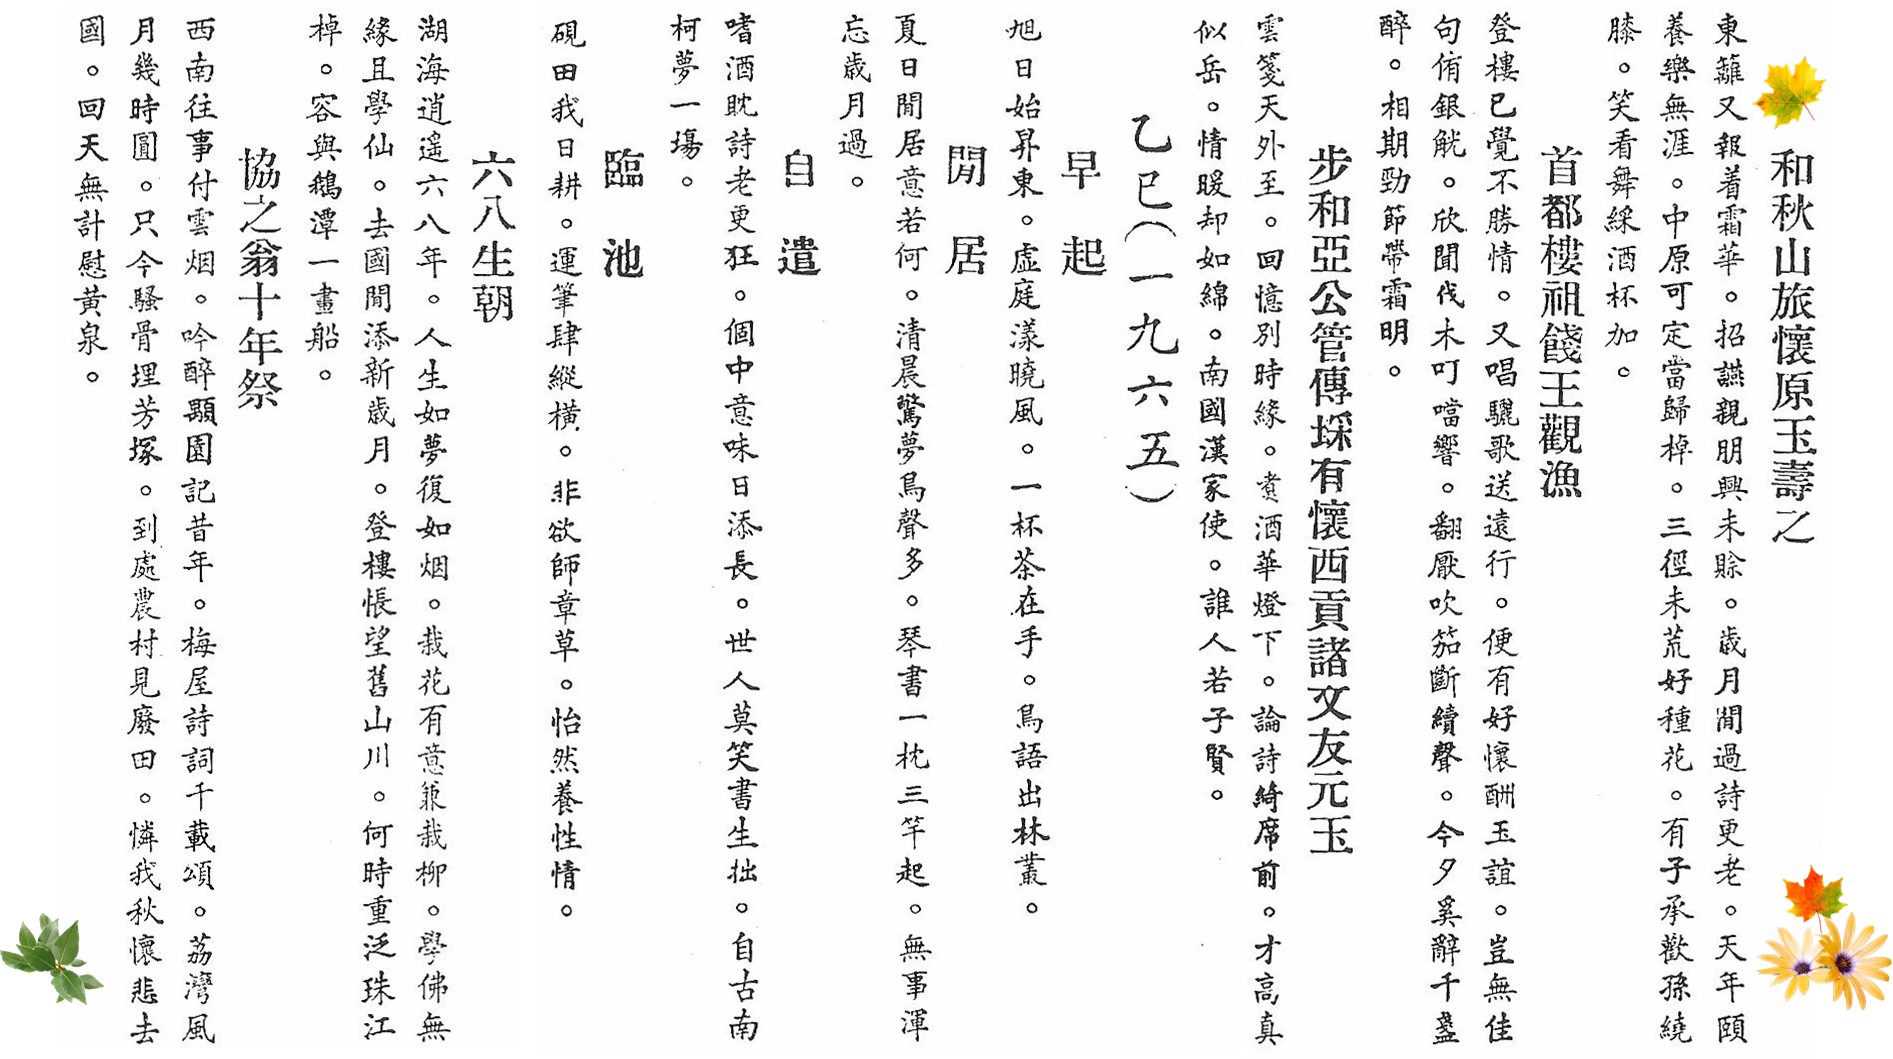 和秋山旅懷原玉壽之
東籬又報着霜華。招讌親朋興未賒。歲月閒過詩更老。天年頤
養樂無涯。中原可定當歸棹。三徑未荒好種花。有子承歡孫繞
膝。笑看舞綵酒杯加。
首都樓祖餞王觀漁
登樓已覺不勝情。又唱驪歌送遠行。便有好懷酬玉誼。豈無佳
句侑銀觥。欣聞伐木叮噹響。翻厭吹笳斷續聲。今夕奚辭千盞
醉。相期勁節帶霜明。
步和亞公管傳埰有懷西貢諸文友元玉
雲箋天外至。回憶別時緣。煑酒華燈下。論詩綺席前。才高真
似岳。情暖却如綿。南國漢家使。誰人若子賢。
乙巳(一九六五)
早起
旭日始昇東。虛庭漾曉風。一杯茶在手。鳥語出林叢。
閒居
夏日閒居意若何。清晨驚夢鳥聲多。琴書一枕三竿起。無事渾
忘歲月過。
自遣
嗜酒眈詩老更狂。個中意味日添長。世人莫笑書生拙。自古南
柯夢一場。
臨池
硯田我日耕。運筆肆縱橫。非欲師章草。怡然養性情。
六八生朝
湖海逍遙六八年。人生如夢復如烟。栽花有意兼栽柳。學佛無
緣且學仙。去國閒添新歲月。登樓悵望舊山川。何時重泛珠江
棹。容與鵝潭一畫船。
協之翁十年祭
西南往事付雲烟。吟醉顒園記昔年。梅屋詩詞千載頌。荔灣風
月幾時圓。只今騷骨埋芳塚。到處農村見廢田。憐我秋懷悲去
國。回天無計慰黃泉。